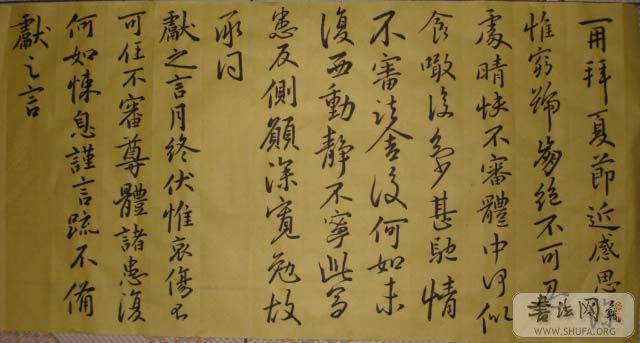 再拜夏節近感思
惟窮號崩絕不可
處晴快不審體中何似
食噉復多少甚馳情
不審諸舍復何如未
復西動靜不寧此
患反側願深寬勉故
承問
獻之言月終伏惟哀傷不
可任不審尊體諸患復
何如悚息謹言疏不備
獻之言
书法网
WWW.SHUFA.ORG